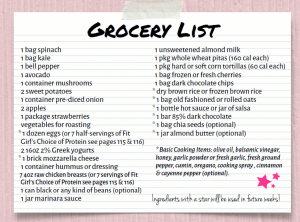 Grocery List
1 bag spinach
1 bag kale
1 bell pepper
1 avocado
1 container mushrooms
2 sweet potatoes
1 container pre-diced onion
2 apples
1 package strawberries
vegetables for roasting
*1 dozen eggs (or 7 half-servings of Fit
Girl's Choice of Protein see pages 115 & 116)
2 16oz 2% Greek yogurts
*1 brick mozzarella cheese
1 container hummus or dressing
7 4oz raw chicken breasts (or 7 servings of Fit
Girl's Choice of Protein see pages 115 & 116)
1 can black or any kind of beans (optional)
1 jar marinara sauce
1 unsweetened almond milk
1 pkg whole wheat pitas (160 cal each)
1 pkg hard or soft corn tortillas (60 cal each)
1 bag frozen or fresh cherries
1 bag dark chocolate chips
*dry brown rice or frozen brown rice
*1 bag old fashioned or rolled oats
*1 bottle hot sauce or jar of salsa
*1 bar 85% dark chocolate
*1 bag chia seeds (optional)
*1 jar almond butter (optional)
*Basic Cooking Items: olive oil, balsamic vinegar,
honey, garlic powder or fresh garlic, fresh ground
pepper, cumin, oregano, cooking spray, cinnamon
& cayenne pepper (optional).
Ingredients with a star will be used in future weeks!